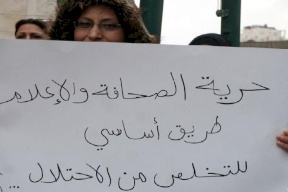 حرية الصحافة والإعلام
طريق أساسي
للتخلص من الاحتلال ..